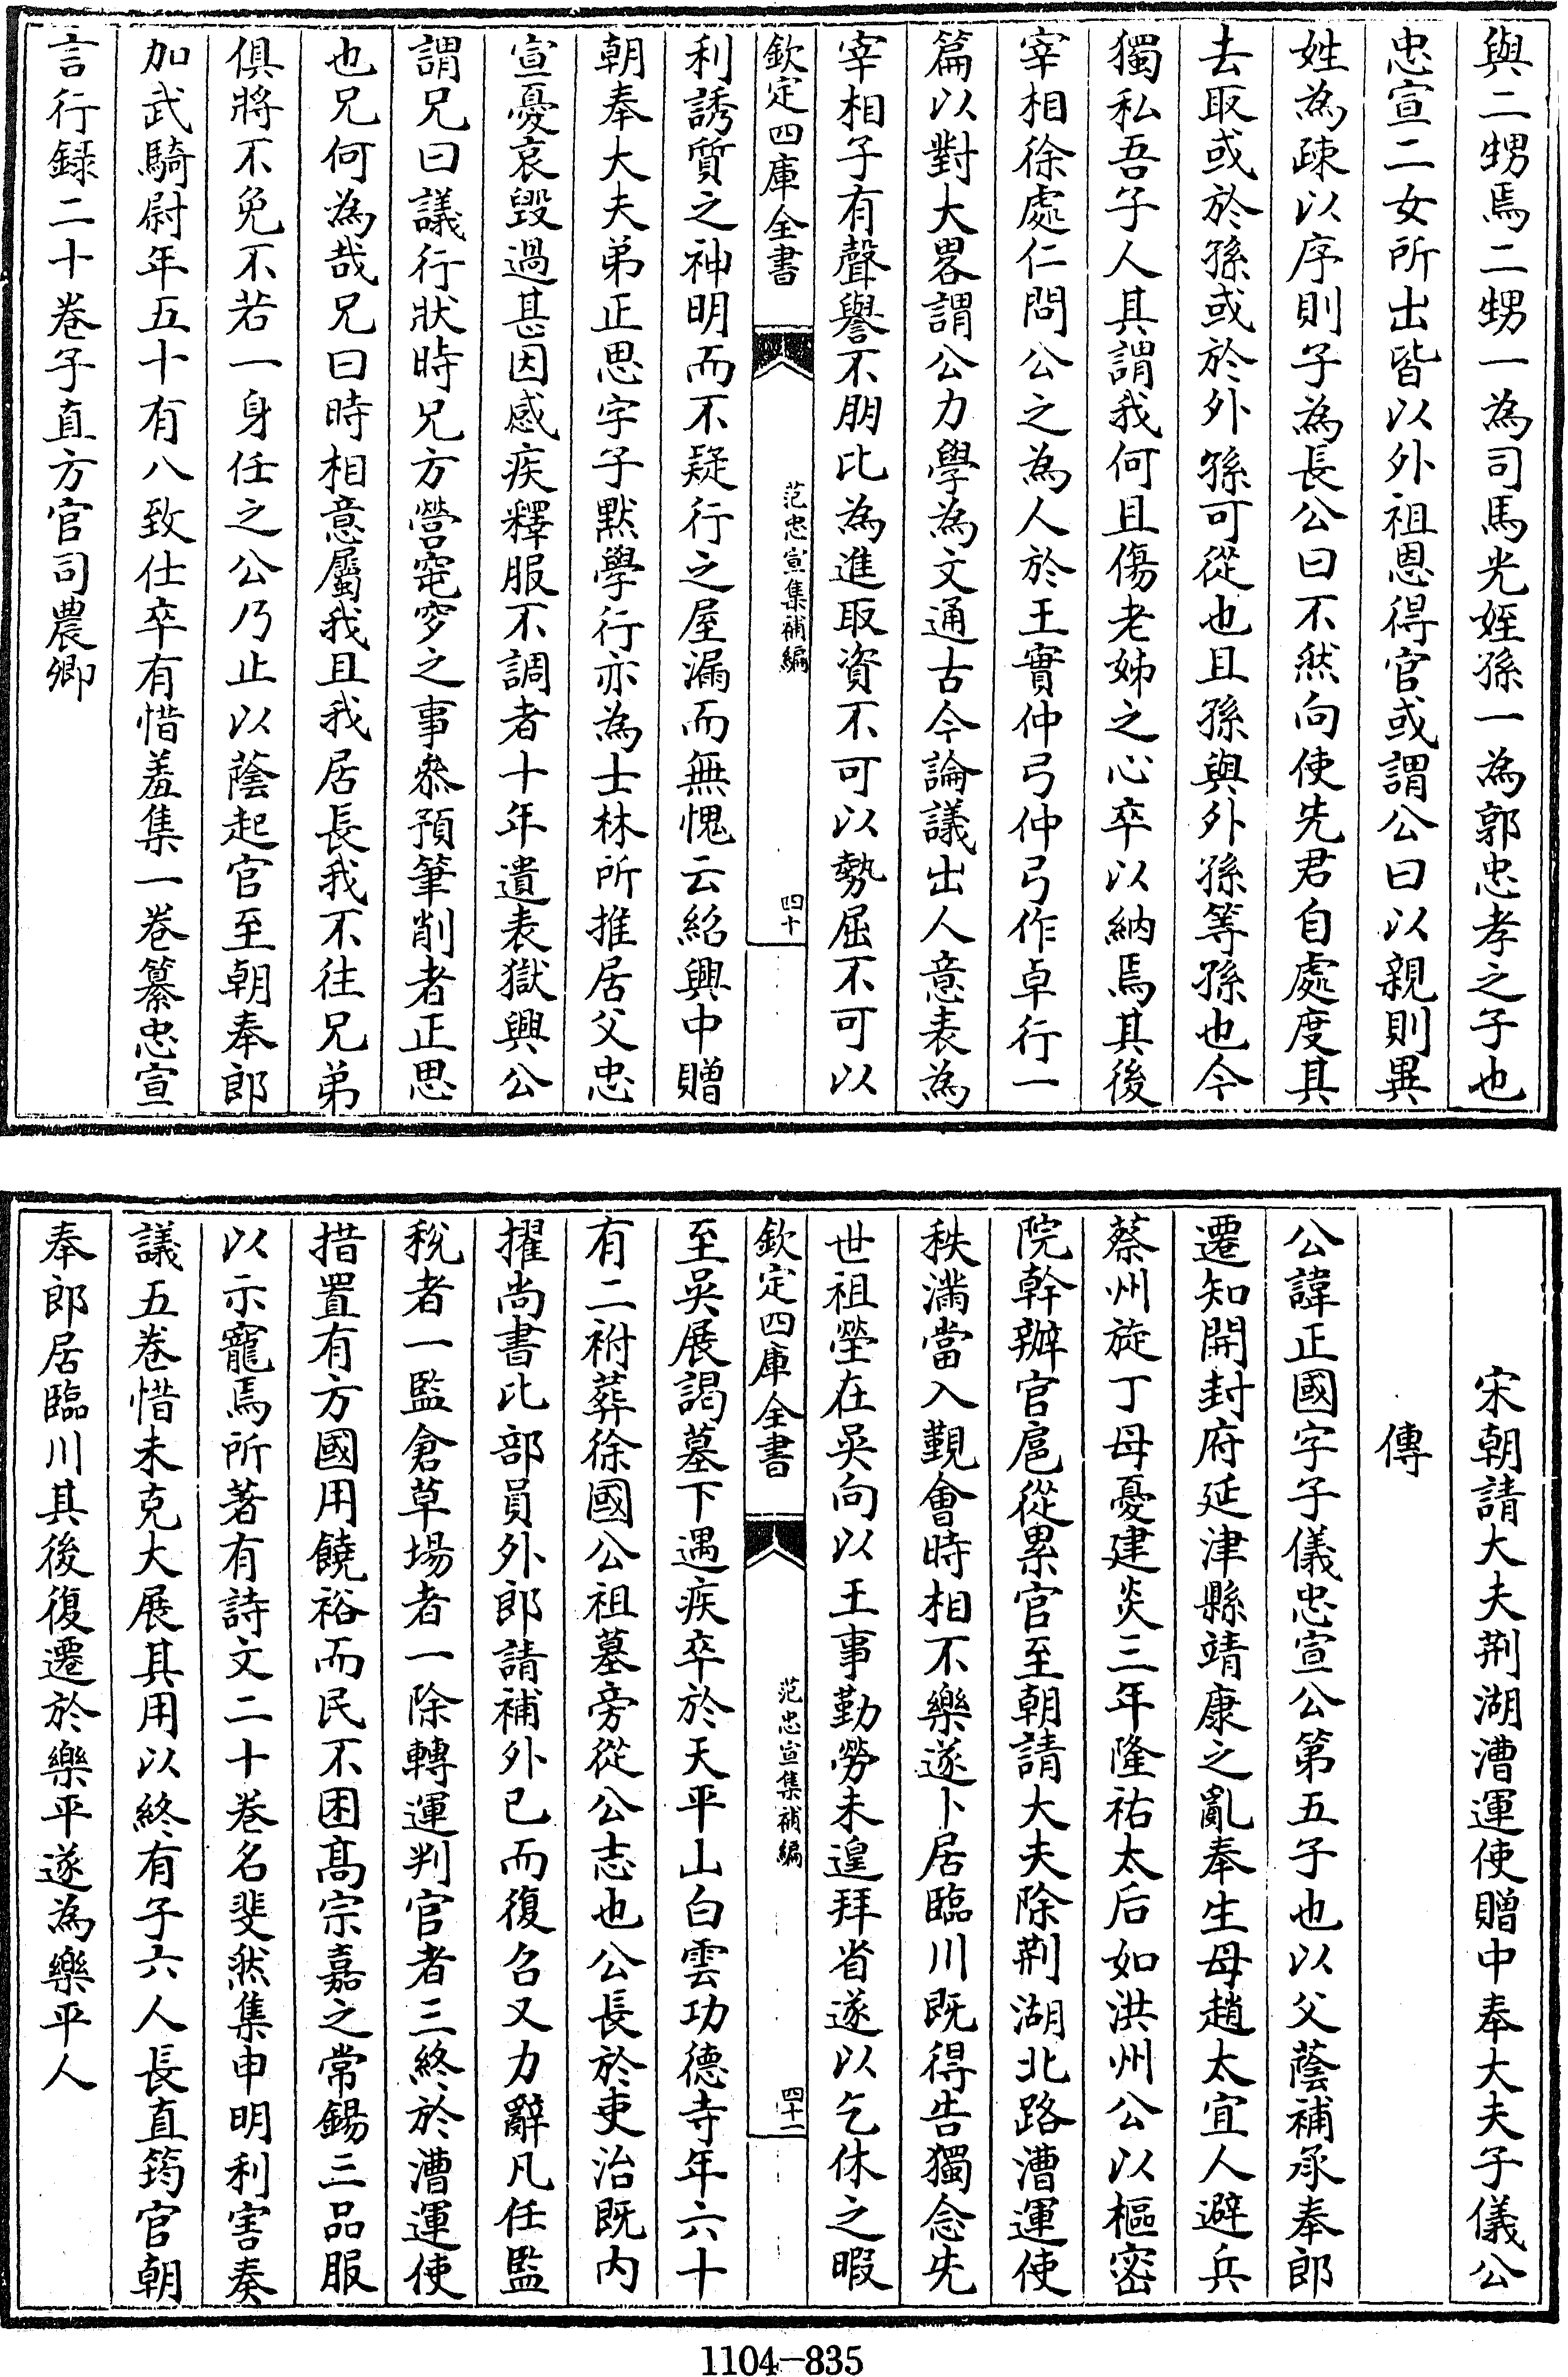 與二甥焉二甥一為司馬光姪孫一為郭忠孝之子也
忠宣二女所出皆以外祖恩得官或謂公曰以親則異
姓為疎以序則子為長公曰不然向使先君自處度其
去取或於孫或於外孫可從也且孫與外孫等孫也今
獨私吾子人其謂我何且傷老姊之心卒以納焉其後
宰相徐處仁問公之為人於王實仲弓仲弓作卓行一
篇以對大畧謂公力學為文通古今論議出人意表為
宰相子有聲譽不朋比為進取資不可以勢屈不可以
欽定四庫全書
范忠宣集補編
四十
利誘質之神明而不疑行之屋漏而無愧云紹興中贈
朝奉大夫弟正思字子默學行亦為士林所推居父忠
宣憂哀毀過甚因感疾釋服不調者十年遺表獄興公
謂兄曰議行狀時兄方營窀穸之事叅預筆削者正思
也兄何為哉兄曰時相意屬我且我居長我不往兄弟
俱將不免不若一身任之公乃止以蔭起官至朝奉郎
加武騎尉年五十有八致仕卒有惜羞集一卷纂忠宣
言行録二十卷子直方官司農卿
宋朝請大夫荆湖漕運使贈中奉大夫子儀公
傳
公諱正國字子儀忠宣公第五子也以父蔭補承奉郎
遷知開封府延津縣靖康之亂奉生母趙太宜人避兵
蔡州旋丁母憂建炎三年隆祐太后如洪州公以樞密
院幹辦官扈從累官至朝請大夫除荆湖北路漕運使
秩滿當入覲會時相不樂遂卜居臨川既得告獨念先
世祖塋在吳向以王事勤勞未遑拜省遂以乞休之暇
欽定四庫全書
范忠宣集補編
四十一
至吳展謁墓下遇疾卒於天平山白雲功德寺年六十
有二祔葬徐國公祖墓旁從公志也公長於吏治既內
擢尚書比部員外郎請補外已而復召又力辭凡任監
稅者一監倉草場者一除轉運判官者三終於漕運使
措置有方國用饒裕而民不困髙宗嘉之常錫三品服
以示寵焉所著有詩文二十卷名斐然集申明利害奏
議五卷惜未克大展其用以終有子六人長直筠官朝
奉郎居臨川其後復遷於樂平遂為樂平人
1104-835